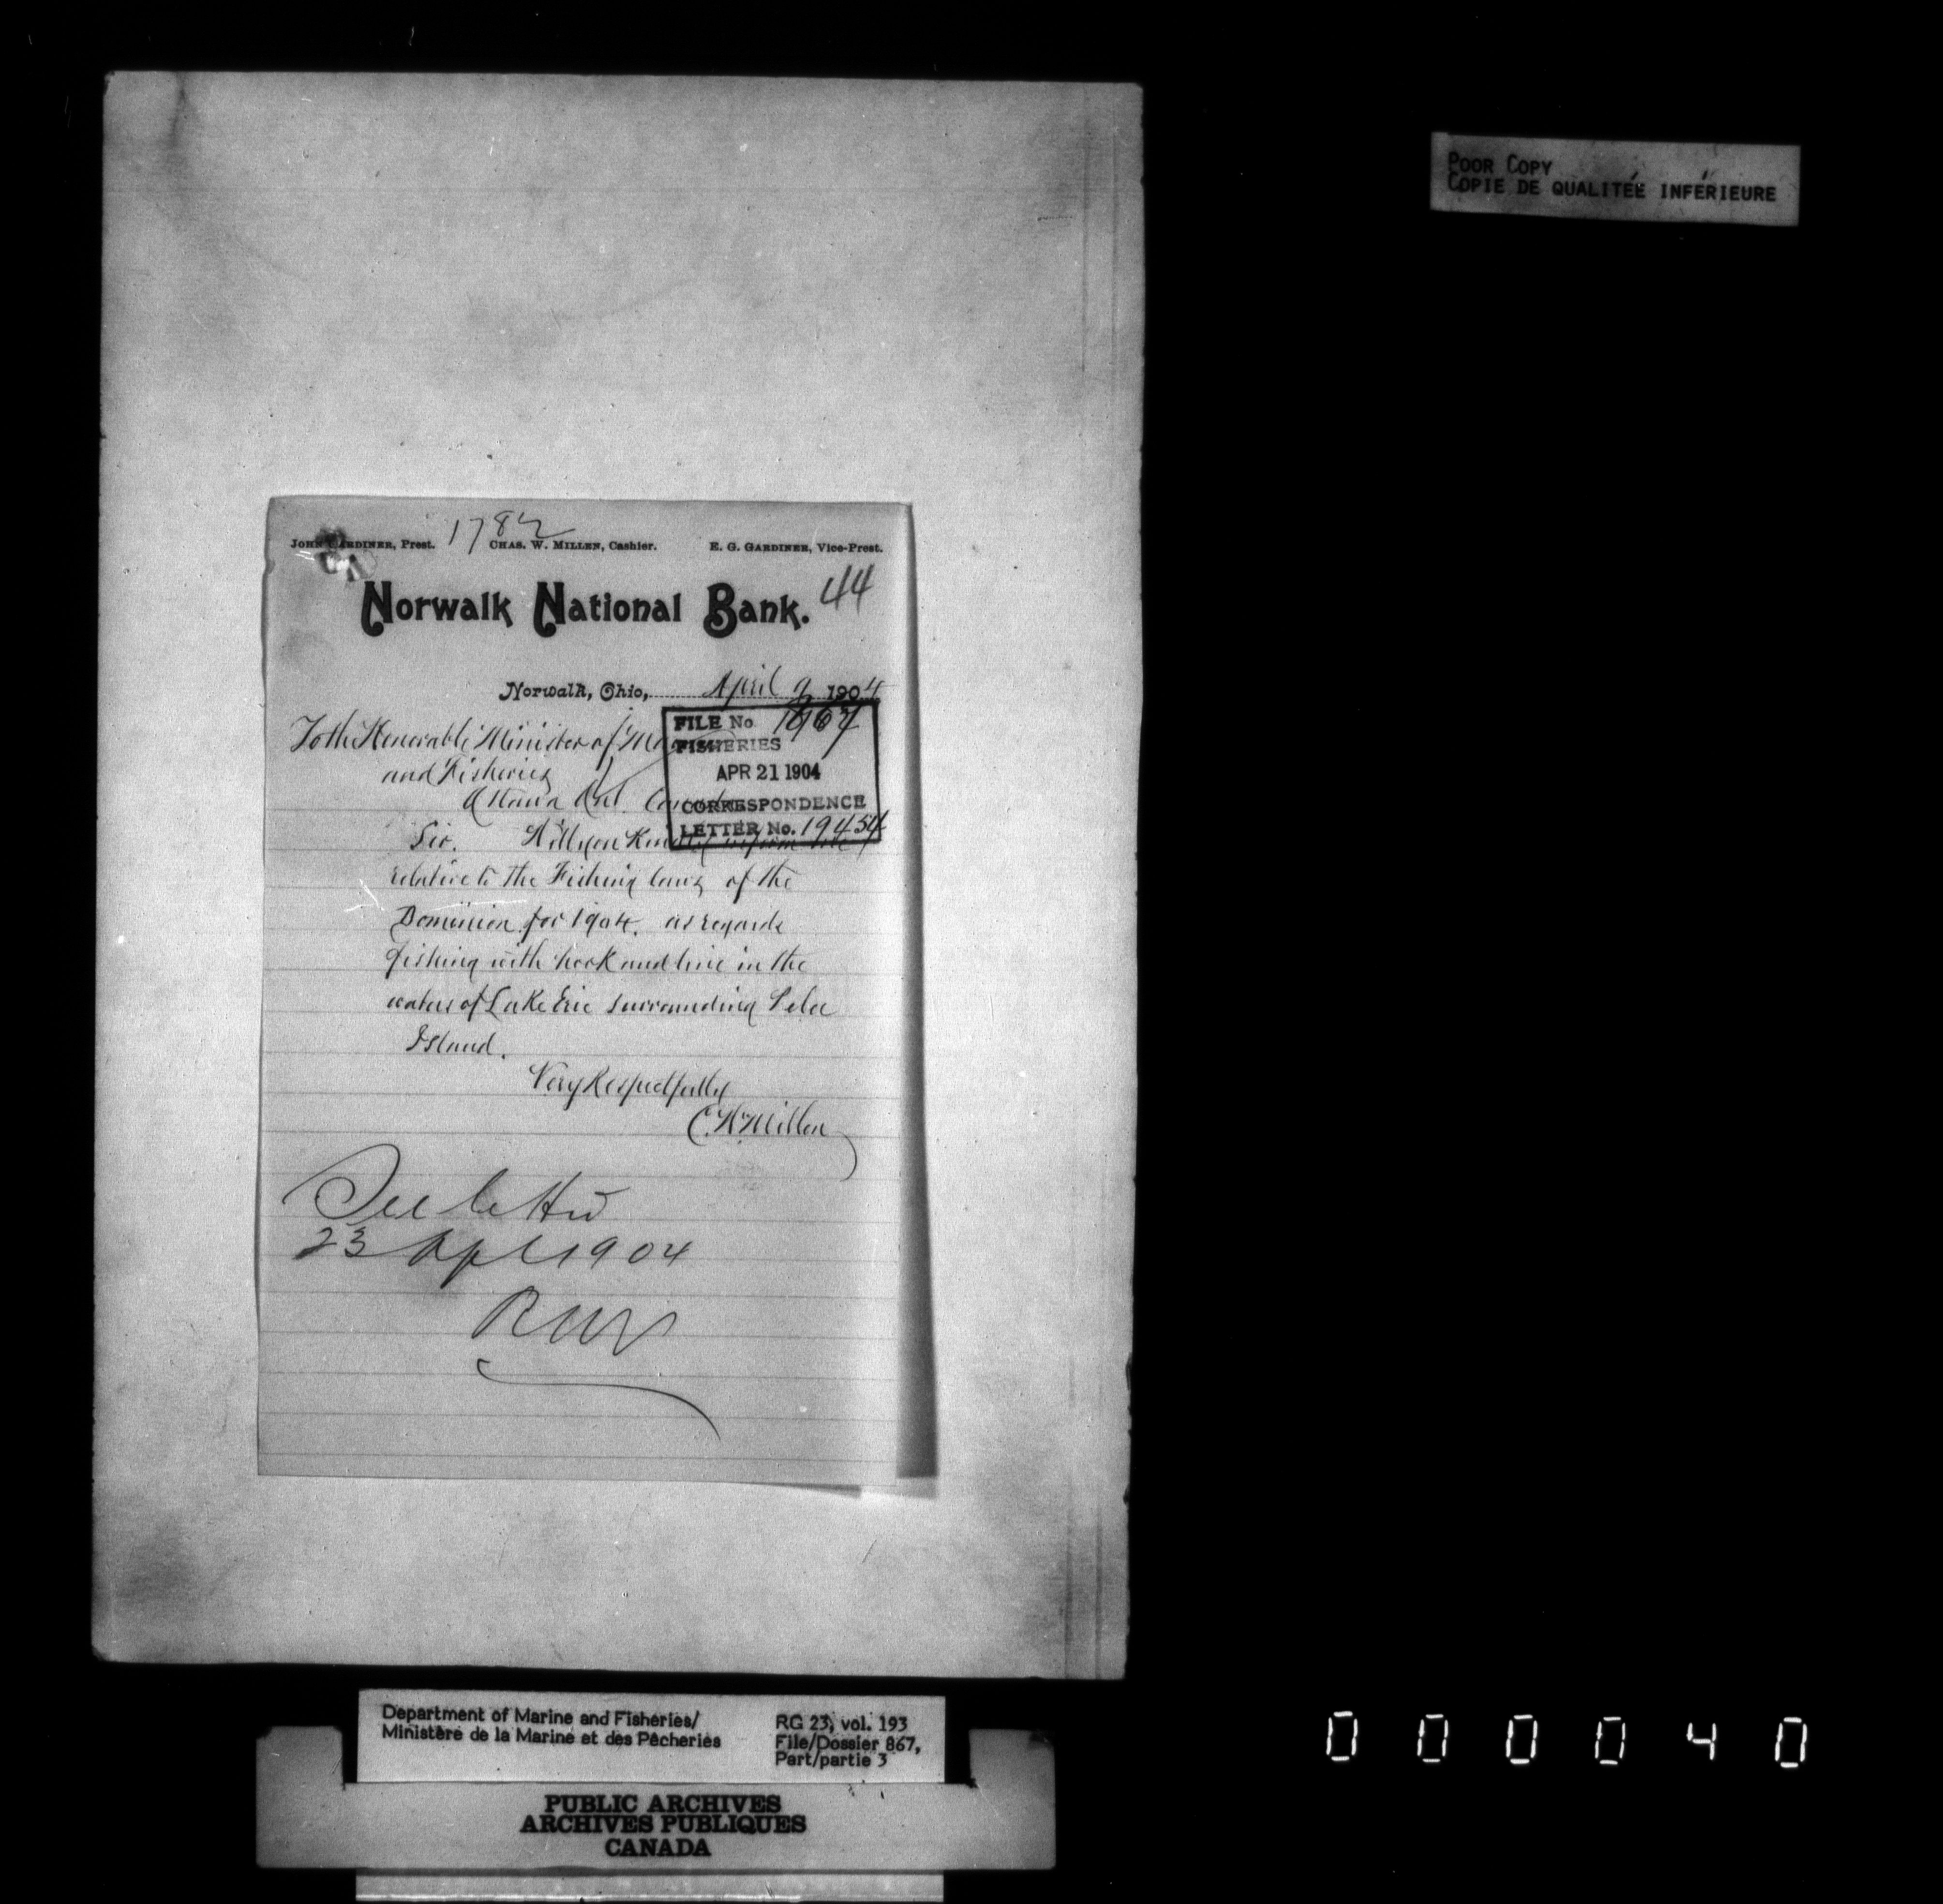 POOR COPY
COPIE DE QUALITÉE INFÉRIEURE
1782
JOHN GARDINER, Prest. CHAS. W. MILLEN, Cashier. E. G. GARDINER, Vice-Prest.
44
Norwalk National Bank.
Norwalk, Ohio, April 9 1904
FILE No
FISHERIES
APR 21 1904
CORRESPONDENCE
LETTER No. 19454
To the Honorable Minister of
and Fisheries
Ottawa Ont. Canada
Sir. Will you Kindly inform me
relative to the Fishing laws of the
Dominion for 1904. as regards
fishing with hook and line in the
waters of Lake Erie surrounding Pelee
Island.
Very Respectfully
C.W. Millen
See letter
23 Apl 1904
Department of Marine and Fisheries/
Ministère de la Marine et des Pêcheries
RG 23, vol. 193
File/Dossier 867,
Part/partie 3
PUBLIC ARCHIVES
ARCHIVES PUBLIQUES
CANADA
000040